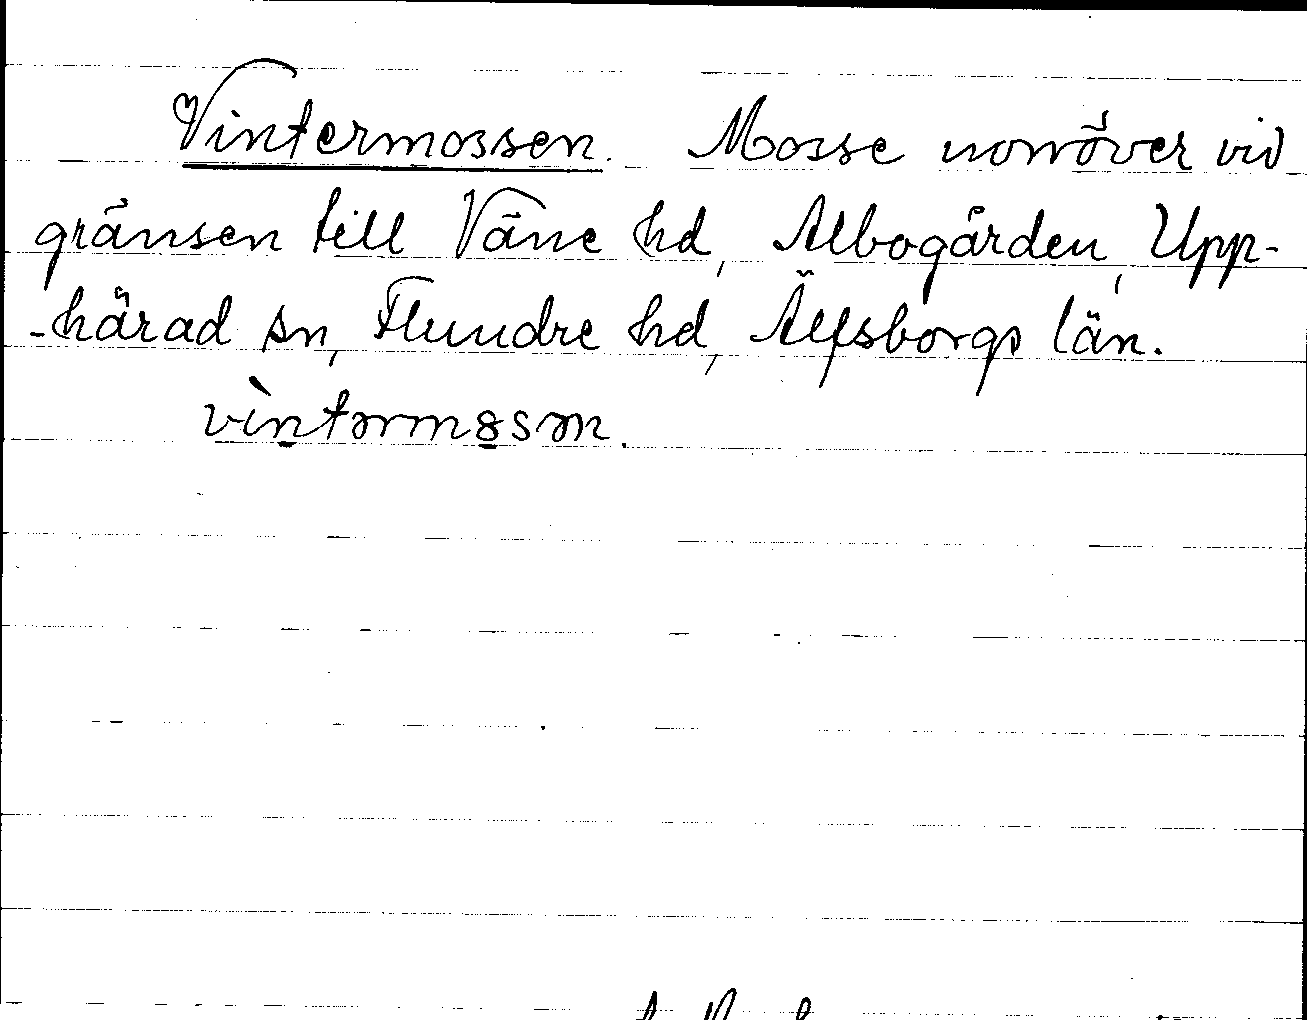 Vintermossen. Mosse norröver vid
gränsen till Väne hd, Albogården, Upp-
-härad sn, Flundre hd, Älfsborgs län.
vìntərm8sən.